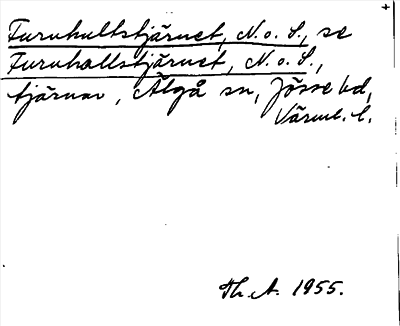 Furuhultstjärnet, N. o. S., se
Furuhallstjärnet, N. o. S.,
tjärnar, Älgå sn, Jösse hd,
Värml. l.
Th. A. 1955.